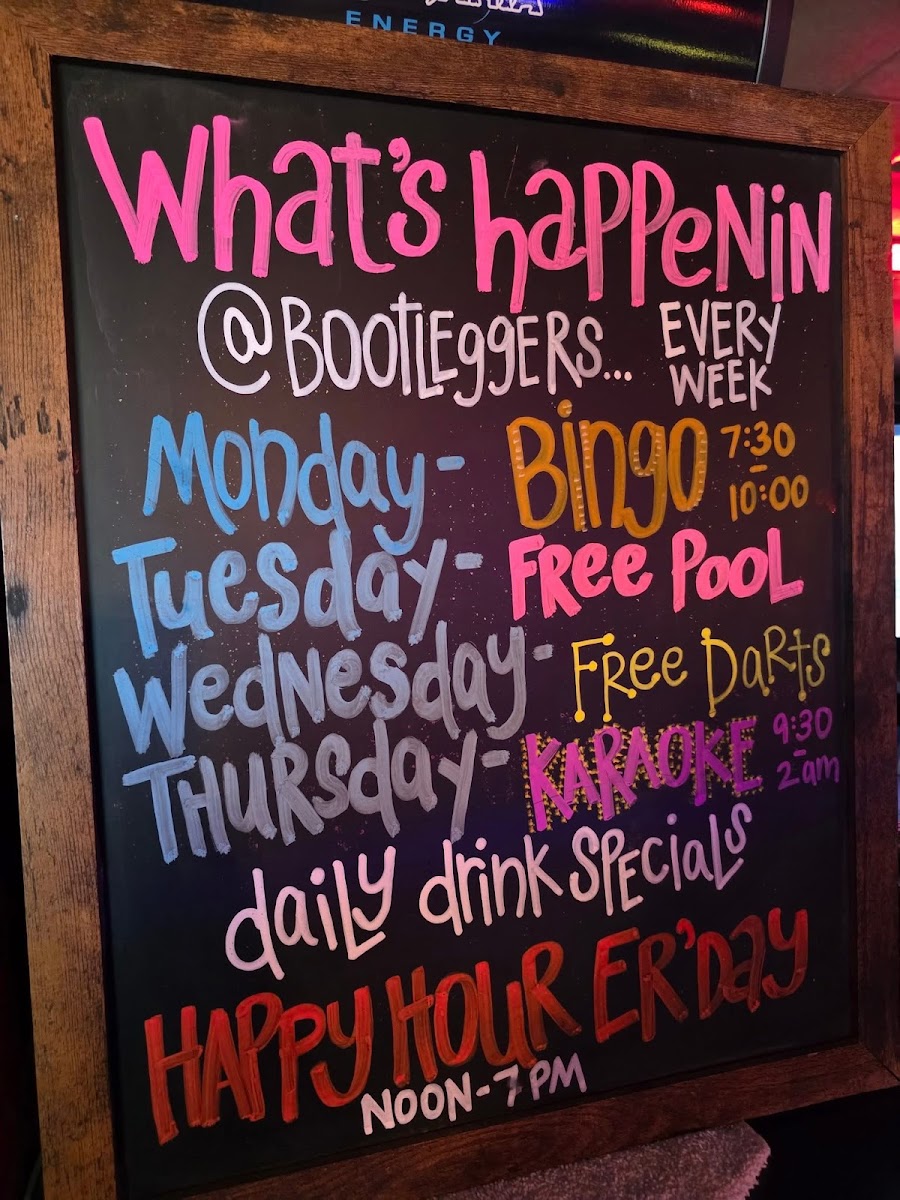 ENERGY
What's happenin
@BOOTLEggERS... EVERY WEEK
Monday- Bingo 7:30 - 10:00
Tuesday- Free Pool
Wednesday- Free Darts
THURSday- KARAOKE 9:30 - 2am
daily drink SPEcialS
HAPPy HOUR ER'Day
NOON-7PM